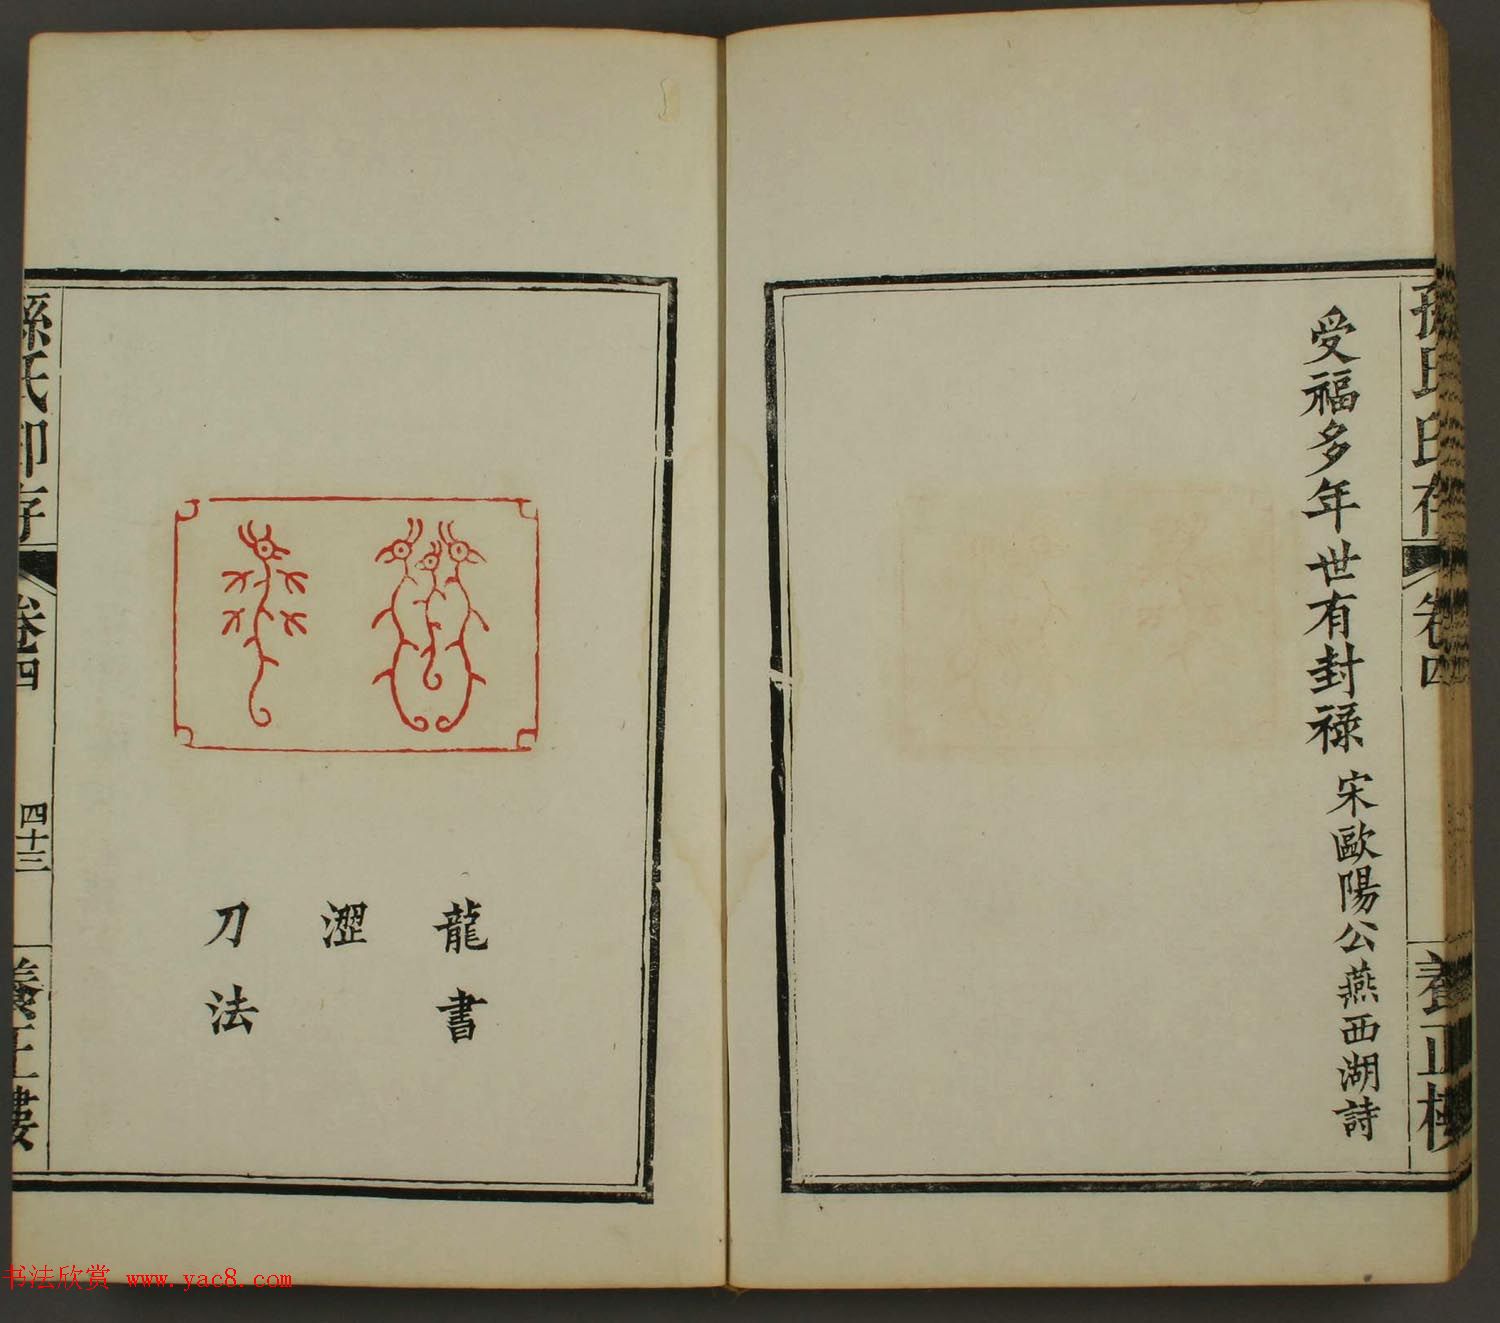 孫氏印存
卷四
養正樓
受福多年世有封祿 宋歐陽公燕西湖詩
龍書
澀
刀法
孫氏印存
卷四
四十三
養正樓
书法欣赏 www.yac8.com